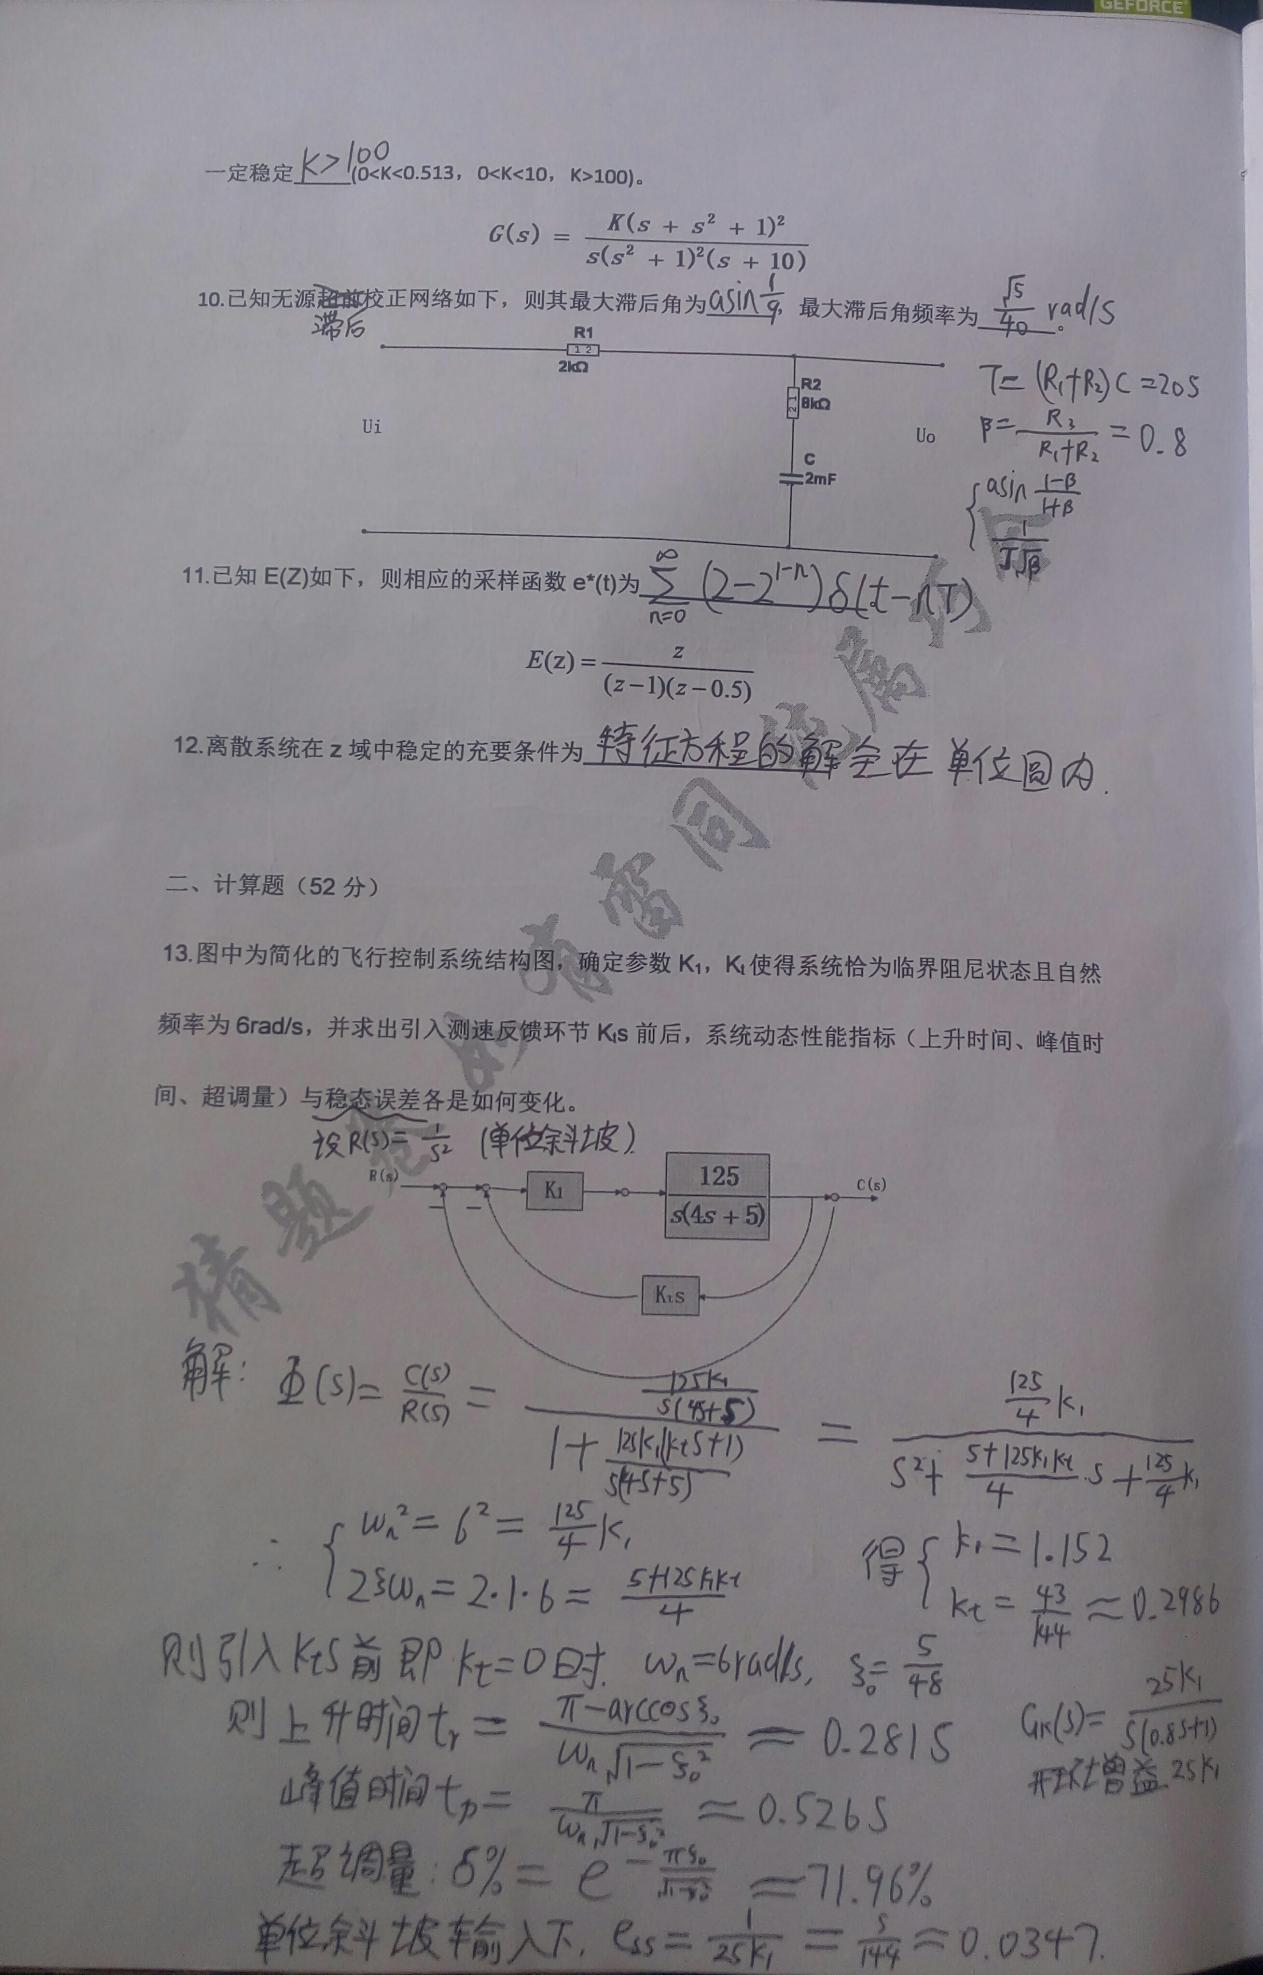 GEFORCE
一定稳定 K>100 (0<K<0.513，0<K<10，K>100)。
G(s) = K(s + s² + 1)² / s(s² + 1)²(s + 10)
10.已知无源超前校正网络如下，则其最大滞后角为 asin 1/9，最大滞后角频率为 √5/40 rad/s。
滞后
R1
2kΩ
R2
8kΩ
Ui
Uo
C
2mF
T=(R₁+R₂)C=20s
β= R₃/(R₁+R₂) =0.8
asin (1-β)/(1+β)
1/(T√β)
11.已知 E(Z)如下，则相应的采样函数 e*(t)为 ∑ n=0 ∞ (2-2^(1-n))δ(t-nT)
E(z) = z / (z-1)(z-0.5)
12.离散系统在 z 域中稳定的充要条件为 特征方程的解全在单位圆内.
二、计算题（52 分）
13.图中为简化的飞行控制系统结构图，确定参数 K₁，Kₜ使得系统恰为临界阻尼状态且自然
频率为 6rad/s，并求出引入测速反馈环节 Kₜs 前后，系统动态性能指标（上升时间、峰值时
间、超调量）与稳态误差各是如何变化。
设R(s)= 1/s² (单位斜坡)
R(s)
K₁
125 / s(4s + 5)
C(s)
− −
Kₜs
解: Φ(s)= C(s)/R(s) = [125k₁/s(4s+5)] / [1+ 125k₁(kₜs+1)/s(4s+5)] = (125/4)k₁ / [s²+ (5+125k₁kₜ)/4 ·s + (125/4)k₁]
∴ { ωn²=6²= (125/4)k₁
2ξωn=2·1·6= (5+125k₁kₜ)/4
得 { k₁=1.152
kₜ= 43/144 ≈0.2986
则引入kₜs前即kₜ=0时. ωn=6rad/s, ξ₀= 5/48
则上升时间 tr= (π-arccosξ₀)/(ωn√(1-ξ₀²)) ≈ 0.281s
Gk(s)= 25k₁/s(0.8s+1)
开环增益25k₁
峰值时间 tp= π/(ωn√(1-ξ₀²)) ≈0.526s
超调量: δ%= e^(-πξ₀/√(1-ξ₀²)) ≈71.96%
单位斜坡输入下, ess= 1/25k₁ = 5/144 ≈0.0347.